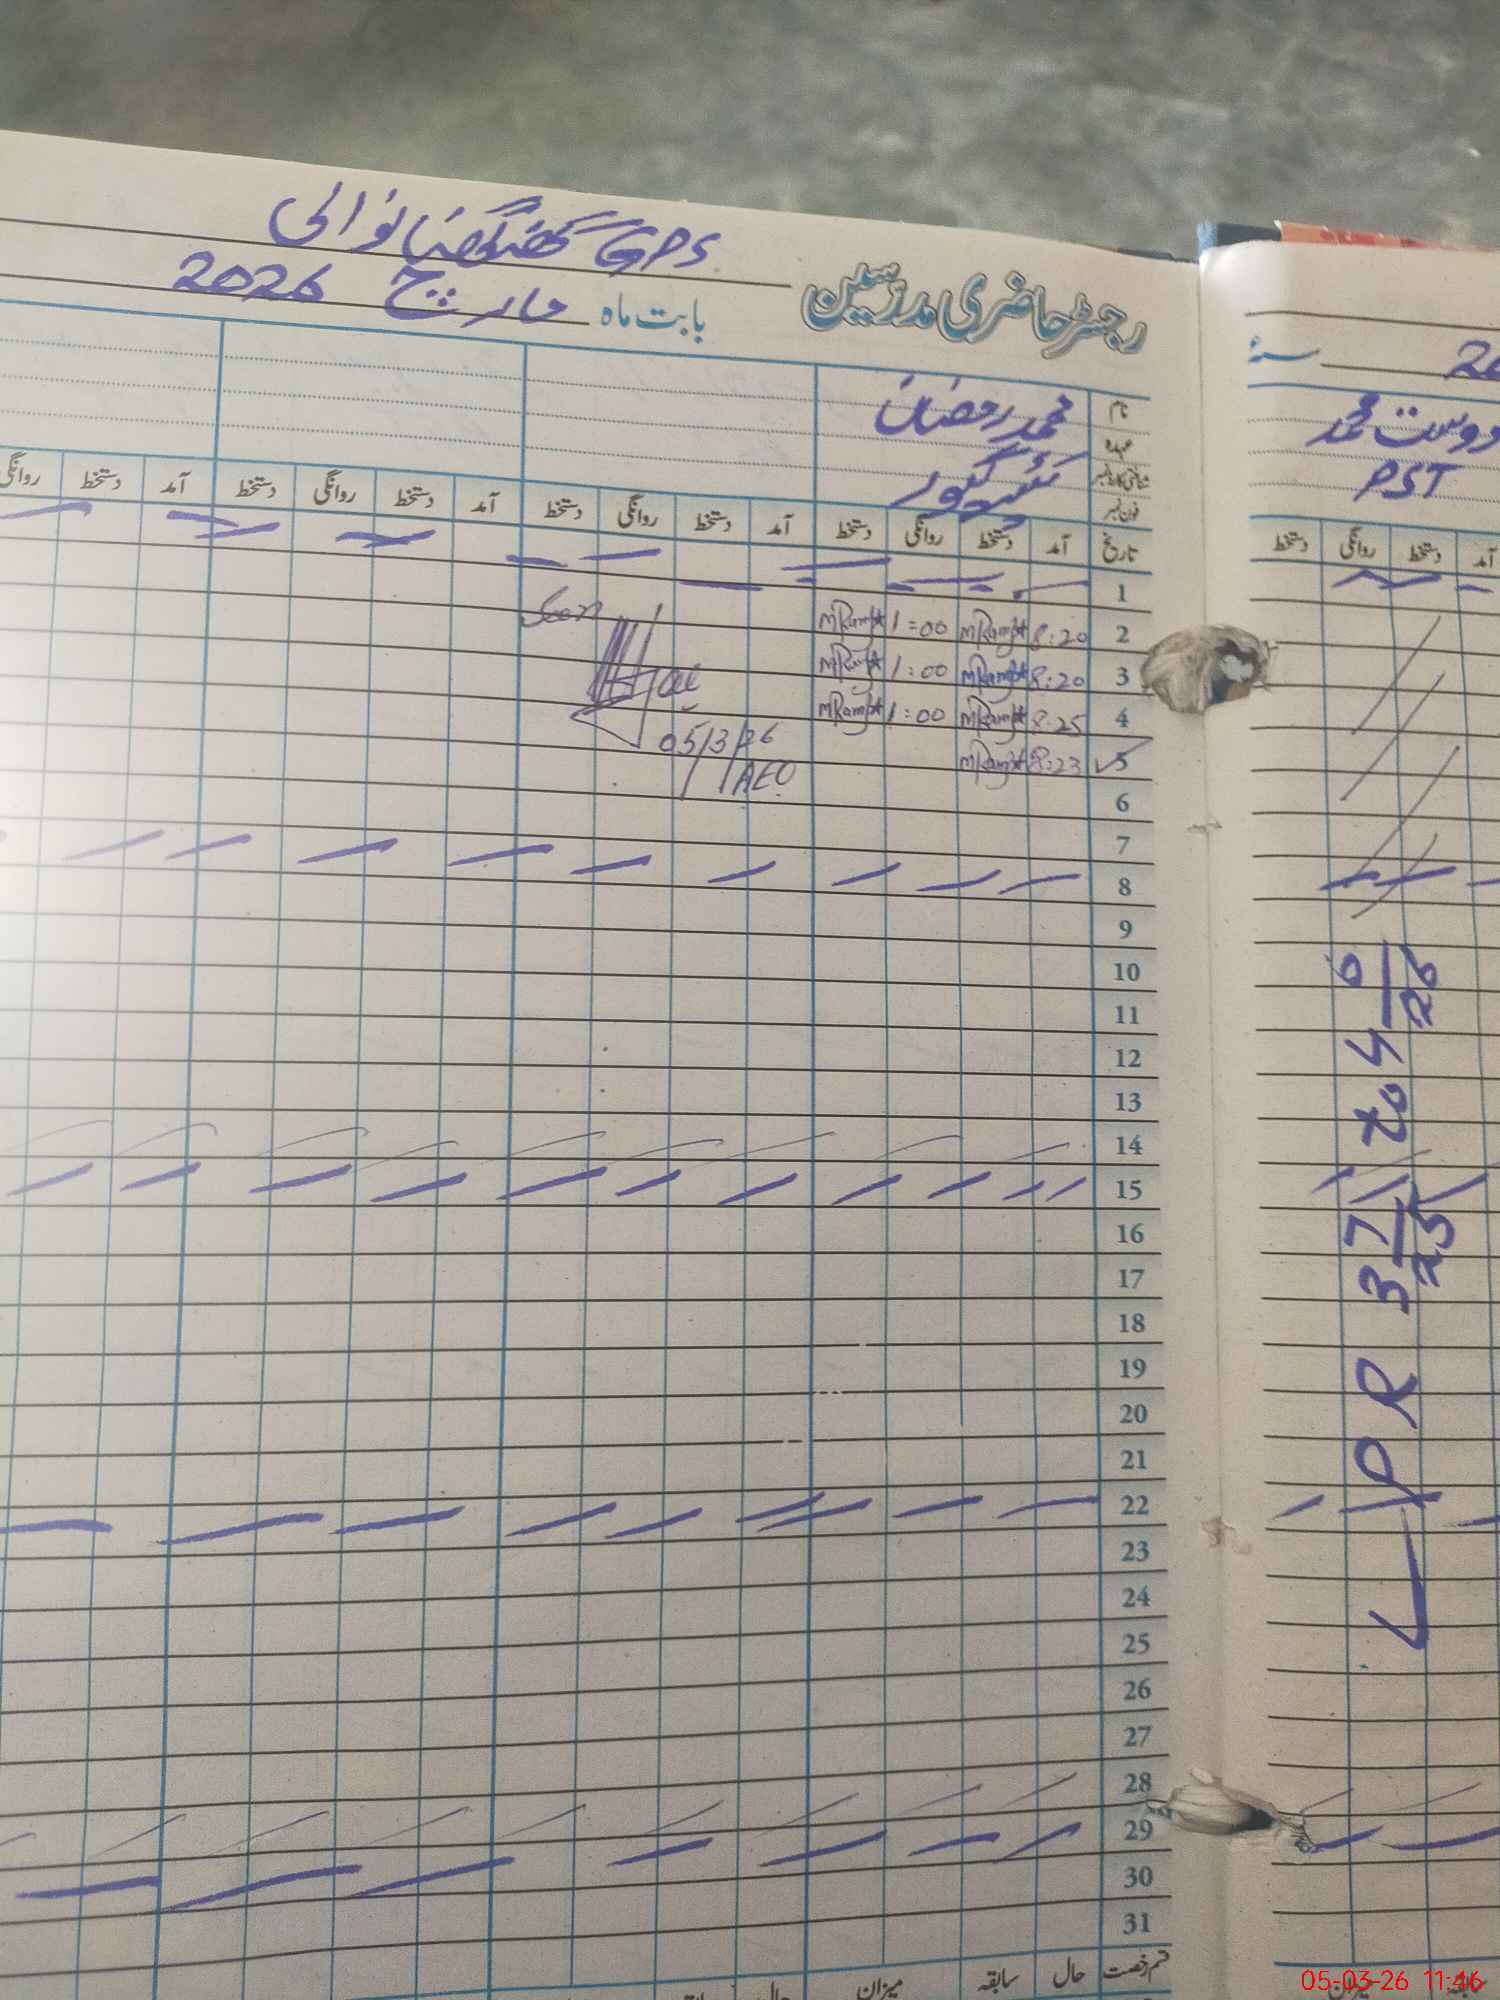 GPS گھنگھنانوالی
رجسٹر حاضری مدرسین
بابت ماہ مارچ 2026
سنہ 20
نام محمد رمضان
دوست محمد
عہدہ
شناختی کارڈ نمبر سکیورٹی
PST
فون نمبر
تاریخ آمد دستخط روانگی دستخط آمد دستخط روانگی دستخط آمد دستخط روانگی دستخط آمد دستخط روانگی
آمد دستخط روانگی دستخط
1
2 8:20 1:00
3 8:20 1:00
4 8:25 1:00
5 8:23
Seen
05/3/26
AEO
6
7
8
9
10
11
12
13
14
15
16
17
18
19
20
21
22
23
24
25
26
27
28
29
30
31
LPR 3 7/25 to 4 6/26
قسم رخصت حال سابقہ میزان حال
سابقہ میزان
05-03-26 11:46